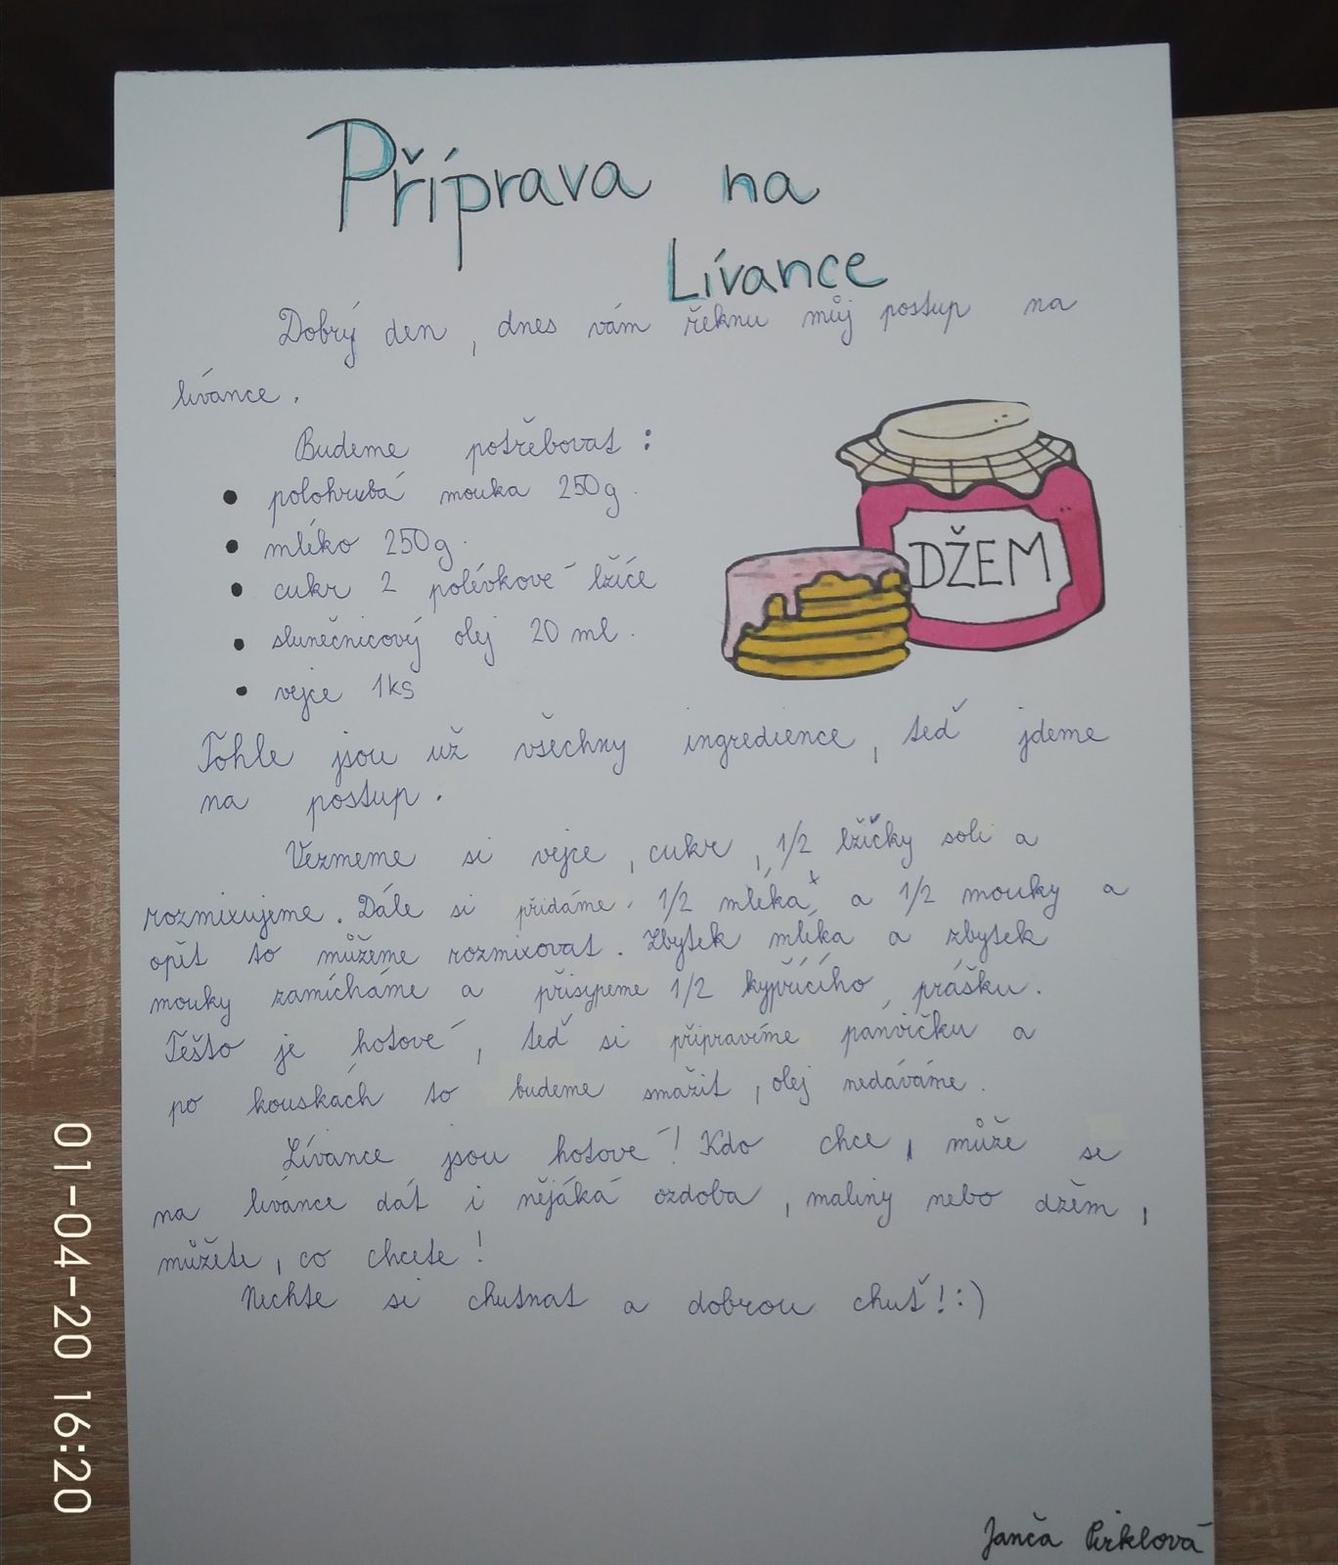 Příprava na
Lívance
Dobrý den, dnes vám řeknu můj postup na
lívance.
Budeme potřebovat:
• polohrubá mouka 250g.
• mléko 250g.
• cukr 2 polévkové lžíce
• slunečnicový olej 20 ml.
• vejce 1ks
DŽEM
Tohle jsou už všechny ingredience, teď jdeme
na postup.
Vezmeme si vejce, cukr, 1/2 lžičky soli a
rozmixujeme. Dále si přidáme 1/2 mléka a 1/2 mouky a
opět to můžeme rozmixovat. Zbytek mléka a zbytek
mouky zamícháme a přisypeme 1/2 kypřícího prášku.
Těsto je hotové, teď si připravíme pánvičku a
po kouskách to budeme smažit, olej nedáváme.
Lívance jsou hotové! Kdo chce, může se
na lívance dát i nějáká ozdoba, maliny nebo džem,
můžete, co chcete!
Nechte si chutnat a dobrou chuť! :)
Janča Pirklová
01-04-20 16:20